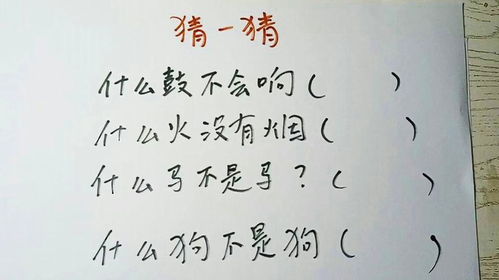 猜一猜
什么鼓不会响(  )
什么火没有烟(  )
什么马不是马?(  )
什么狗不是狗(  )